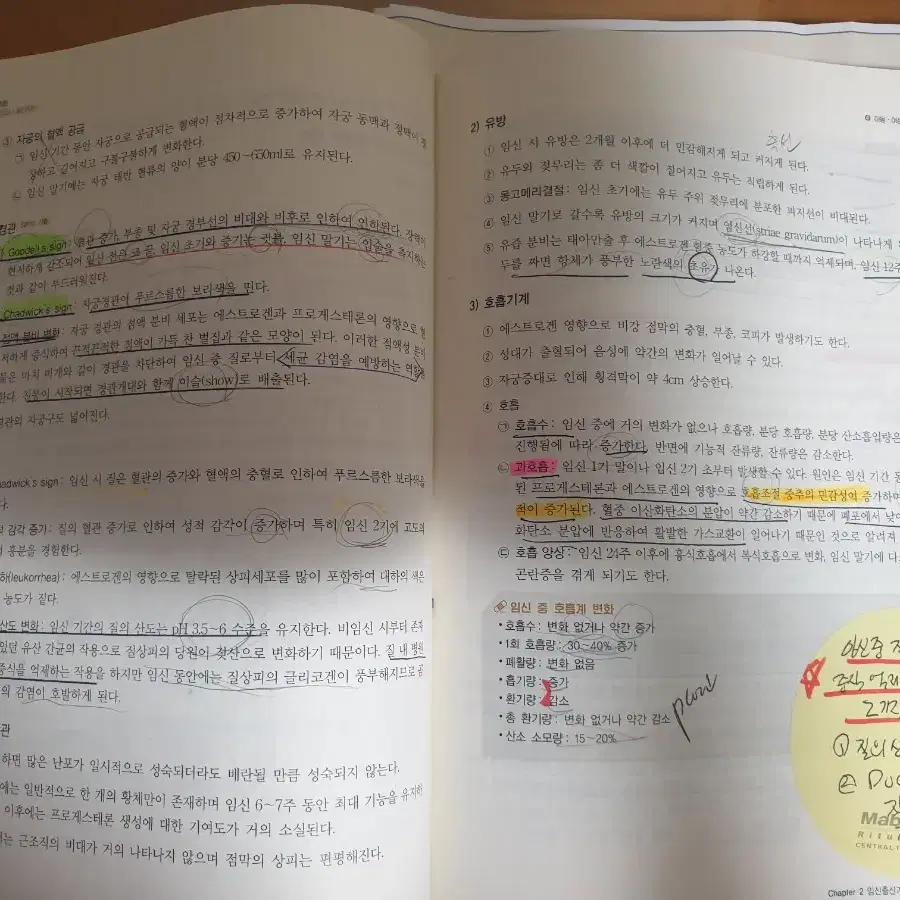 ③ 자궁의 혈액 공급
㉠ 임신 기간 동안 자궁으로 공급되는 혈액이 점차적으로 증가하여 자궁 동맥과 정맥이
장하고 길어지고 구불구불하게 변화한다.
㉡ 임신 말기에는 자궁 태반 혈류의 양이 분당 450~650ml로 유지된다.
Goodell's sign : 혈관 증가, 부종 및 자궁 경부선의 비대와 비후로 인하여 연화된다. 강력이
현저하게 감소되어 임신 전은 코 끝, 임신 초기와 중기는 귓불, 임신 말기는 입술을 촉지하는
것과 같이 부드러워진다.
Chadwick's sign : 자궁경관이 푸르스름한 보라색을 띤다.
점액 분비 변화 : 자궁 경관의 점액 분비 세포는 에스트로겐과 프로게스테론의 영향으로
저하게 증식하여 끈적끈적한 점액이 가득 찬 벌집과 같은 모양이 된다. 이러한 점액성 분비
물은 마치 마개와 같이 경관을 차단하여 임신 중 질로부터 세균 감염을 예방하는 역할을
한다. 진통이 시작되면 경관개대와 함께 이슬(show)로 배출된다.
경관외 자궁구도 넓어진다.
hadwick's sign : 임신 시 질은 혈관의 증가와 혈액의 충혈로 인하여 푸르스름한 보라색을
다.
감각 증가 : 질의 혈관 증가로 인하여 성적 감각이 증가하며 특히 임신 2기에 고도의
흥분을 경험한다.
하(leukorrhea) : 에스트로겐의 영향으로 탈락된 상피세포를 많이 포함하여 대하의 색은
농도가 짙다.
산도 변화 : 임신 기간의 질의 산도는 pH 3.5~6 수준을 유지한다. 비임신 시부터 존재
있던 유산 간균의 작용으로 질상피의 당원이 젖산으로 변화하기 때문이다. 질 내 병원
증식를 억제하는 작용을 하지만 임신 동안에는 질상피의 글리코겐이 풍부해지므로
의 감염이 호발하게 된다.
관
하면 많은 난포가 일시적으로 성숙되더라도 배란될 만큼 성숙되지 않는다.
에는 일반적으로 한 개의 황체만이 존재하며 임신 6~7주 동안 최대 기능을 유지하
이후에는 프로게스테론 생성에 대한 기여도가 거의 소실된다.
는 근조직의 비대가 거의 나타나지 않으며 점막의 상피는 편평해진다.
2) 유방
① 임신 시 유방은 2개월 이후에 더 민감해지게 되고 커지게 된다.
② 유두와 젖무리는 좀 더 색깔이 짙어지고 유두는 직립하게 된다.
③ 몽고메리결절 : 임신 초기에는 유두 주위 젖무리에 분포한 피지선이 비대된다.
④ 임신 말기로 갈수록 유방의 크기가 커지며 임신선(striae gravidarum)이 나타나게
⑤ 유즙 분비는 태아만출 후 에스트로겐 혈중 농도가 하강할 때까지 억제되며, 임신 12주
두를 짜면 항체가 풍부한 노란색의 초유가 나온다.
3) 호흡기계
① 에스트로겐 영향으로 비강 점막의 충혈, 부종, 코피가 발생하기도 한다.
② 성대가 출혈되어 음성에 약간의 변화가 일어날 수 있다.
③ 자궁증대로 인해 횡격막이 약 4cm 상승한다.
④ 호흡
㉠ 호흡수 : 임신 중에 거의 변화가 없으나 호흡량, 분당 호흡량, 분당 산소흡입량은
진행됨에 따라 증가한다. 반면에 기능적 잔류량, 잔류량은 감소한다.
㉡ 과호흡 : 임신 1기 말이나 임신 2기 초부터 발생할 수 있다. 원인은 임신 기간
된 프로게스테론과 에스트로겐의 영향으로 호흡조절 중추의 민감성이 증가하며
적이 증가된다. 혈중 이산화탄소의 분압이 약간 감소하기 때문에 폐포에서 낮아
화탄소 분압에 반응하여 활발한 가스교환이 일어나기 때문인 것으로 알려져
㉢ 호흡 양상 : 임신 24주 이후에 흉식호흡에서 복식호흡으로 변화, 임신 말기에
곤란증을 겪게 되기도 한다.
임신 중 호흡계 변화
• 호흡수 : 변화 없거나 약간 증가
• 1회 호흡량 : 30~40% 증가
• 폐활량 : 변화 없음
• 흡기량 : 증가
• 환기량 : 감소
• 총 환기량 : 변화 없거나 약간 감소
• 산소 소모량 : 15~20%
임신중
증식 억제
① 질의
②
CENTRAL
Chapter 2 임신출산기